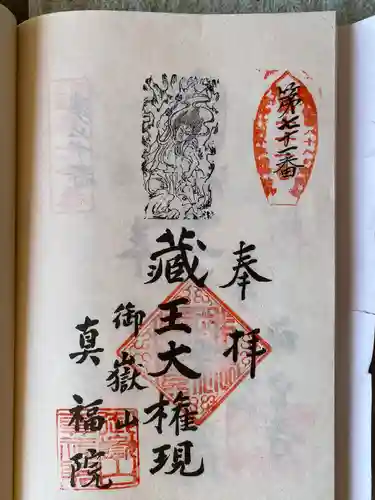 第七十一番
奉拝
蔵王大権現
御嶽山
真福院